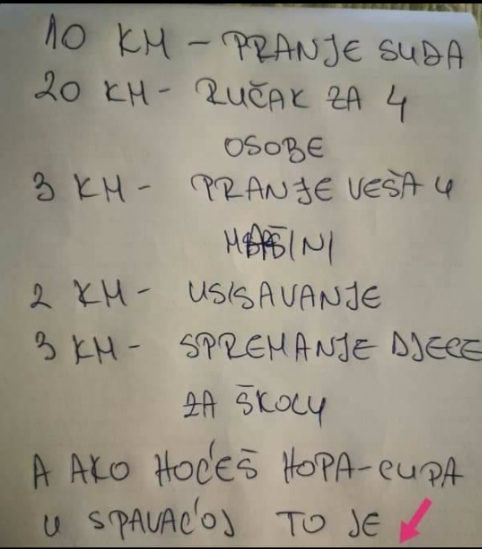 10 KM - PRANJE SUĐA
20 KM - RUČAK ZA 4
OSOBE
3 KM - PRANJE VEŠA U
MAŠINI
2 KM - USISAVANJE
3 KM - SPREMANJE DJECE
ZA ŠKOLU
A AKO HOĆEŠ HOPA-CUPA
U SPAVAĆOJ TO JE